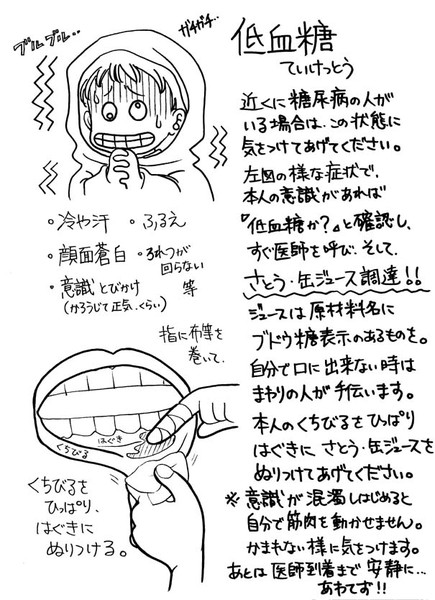 ブルブル‥
ガチガチ‥
低血糖
ていけっとう
近くに糖尿病の人が
いる場合は、この状態に
気をつけてあげてください。
左図の様な症状で、
本人の意識があれば
『低血糖か?』と確認し、
すぐ医師を呼び、そして、
さとう・缶ジュース調達!!
ジュースは原材料名に
ブドウ糖表示のあるものを。
自分で口に出来ない時は
まわりの人が手伝います。
本人のくちびるをひっぱり
はぐきに さとう・缶ジュースを
ぬりつけてあげてください。
※意識が混濁しはじめると
自分で筋肉を動かせません。
かまれない様に気をつけます。
あとは医師到着まで安静に…
あわてず!!
・冷や汗 ・ふるえ
・顔面蒼白 ・ろれつが
回らない
・意識とびかけ 等
(かろうじて正気、くらい)
指に布等を
巻いて、
はぐき
くちびる
くちびるを
ひっぱり、
はぐきに
ぬりつける。